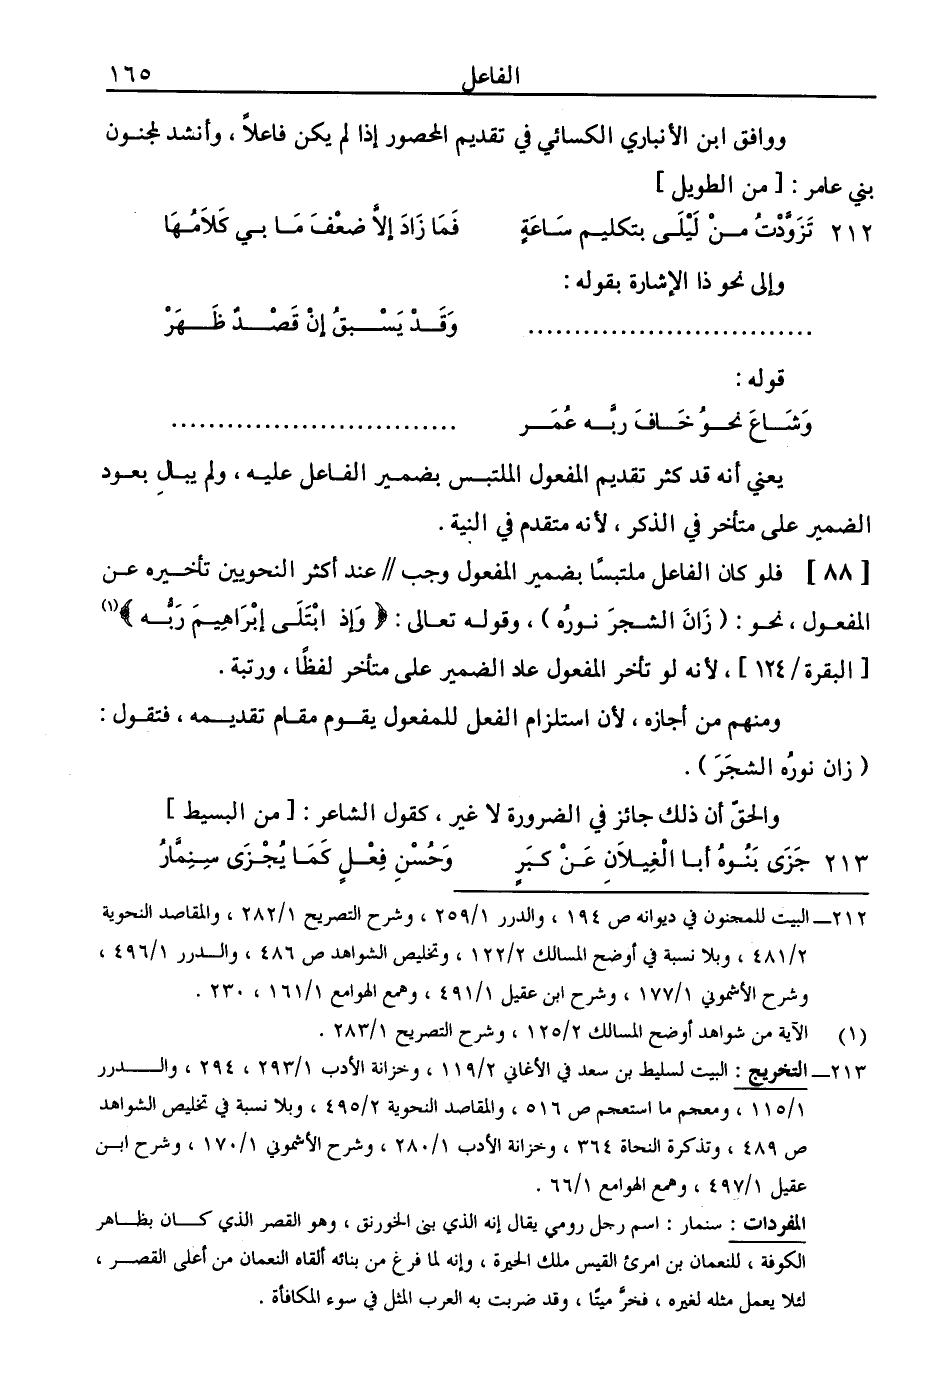 الفاعل ١٦٥
ووافق ابن الأنباري الكسائي في تقديم المحصور إذا لم يكن فاعلاً ، وأنشد لمجنون
بني عامر : [ من الطويل ]
٢١٢ تَزَوَّدْتُ مِنْ لَيْلَى بتكليم سَاعَةٍ فَمَا زَادَ إلاَّ ضعْفَ مَا بي كَلاَمُهَا
وإلى نحو ذا الإشارة بقوله :
.............................. وَقَدْ يَسْبقُ إنْ قَصْدٌ ظَهَرْ
قوله :
وَشَاعَ نحوُ خَافَ ربَّه عُمَر ..............................
يعني أنه قد كثر تقديم المفعول الملتبس بضمير الفاعل عليه ، ولم يبالِ بعود
الضمير على متأخر في الذكر ، لأنه متقدم في النية .
[ ٨٨ ] فلو كان الفاعل ملتبسًا بضمير المفعول وجب // عند أكثر النحويين تأخيره عن
المفعول ، نحو : ( زَانَ الشجرَ نورُه ) ، وقوله تعالى : ﴿ وَإذ ابْتَلَى إبْرَاهِيمَ رَبُّه ﴾(١)
[ البقرة / ١٢٤ ] ، لأنه لو تأخر المفعول عاد الضمير على متأخر لفظًا ، ورتبة .
ومنهم من أجازه ، لأن استلزام الفعل للمفعول يقوم مقام تقديمه ، فتقول :
( زان نورُه الشجَرَ ) .
والحقّ أن ذلك جائز في الضرورة لا غير ، كقول الشاعر : [ من البسيط ]
٢١٣ جَزَى بَنُوهُ أبا الْغِيلاَنِ عَنْ كبَرٍ وَحُسْنِ فِعْلٍ كَمَا يُجْزَى سِنِمَّارُ
٢١٢ــ البيت للمجنون في ديوانه ص ١٩٤ ، والدرر ٢٥٩/١ ، وشرح التصريح ٢٨٢/١ ، والمقاصد النحوية
٤٨١/٢ ، وبلا نسبة في أوضح المسالك ١٢٢/٢ ، وتخليص الشواهد ص ٤٨٦ ، والدرر ٤٩٦/١ ،
وشرح الأشموني ١٧٧/١ ، وشرح ابن عقيل ٤٩١/١ ، وهمع الهوامع ١٦١/١ ، ٢٣٠ .
(١) الآية من شواهد أوضح المسالك ١٢٥/٢ ، وشرح التصريح ٢٨٣/١ .
٢١٣ــ التخريج : البيت لسليط بن سعد في الأغاني ١١٩/٢ ، وخزانة الأدب ٢٩٣/١ ، ٢٩٤ ، والدرر
١١٥/١ ، ومعجم ما استعجم ص ٥١٦ ، والمقاصد النحوية ٤٩٥/٢ ، وبلا نسبة في تخليص الشواهد
ص ٤٨٩ ، وتذكرة النحاة ٣٦٤ ، وخزانة الأدب ٢٨٠/١ ، وشرح الأشموني ١٧٠/١ ، وشرح ابن
عقيل ٤٩٧/١ ، وهمع الهوامع ٦٦/١ .
المفردات : سنمار : اسم رجل رومي يقال إنه الذي بنى الخورنق ، وهو القصر الذي كان بظاهر
الكوفة ، للنعمان بن امرئ القيس ملك الحيرة ، وإنه لما فرغ من بنائه ألقاه النعمان من أعلى القصر ،
لئلا يعمل مثله لغيره ، فخرَّ ميتًا ، وقد ضربت به العرب المثل في سوء المكافأة .